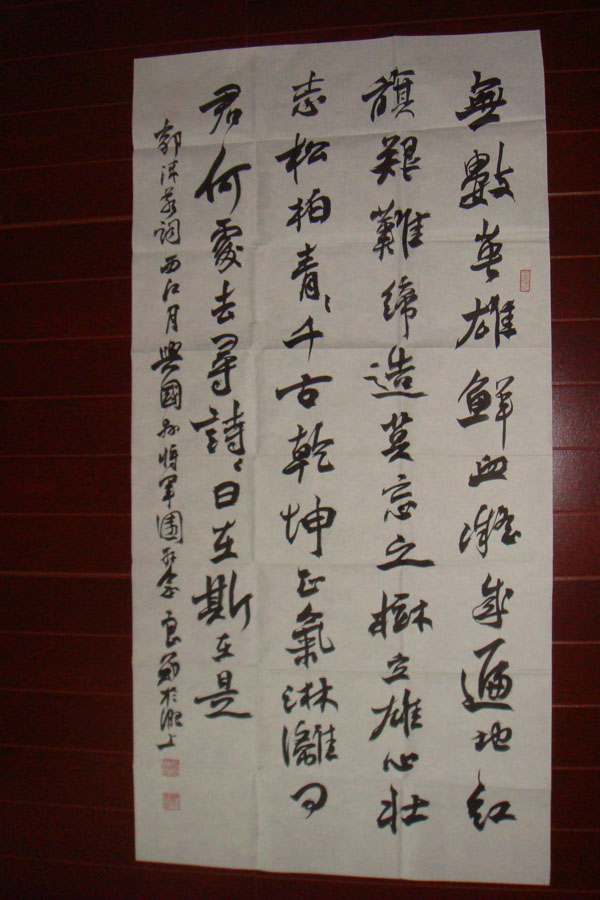 無數英雄鮮血凝成遍地紅
旗艱難締造莫忘之樹立雄心壯
志松柏青々千古乾坤正氣淋灕問
君何處去尋詩々曰在斯在是
郭沫若詞西江月興國縣將軍園 於淝上